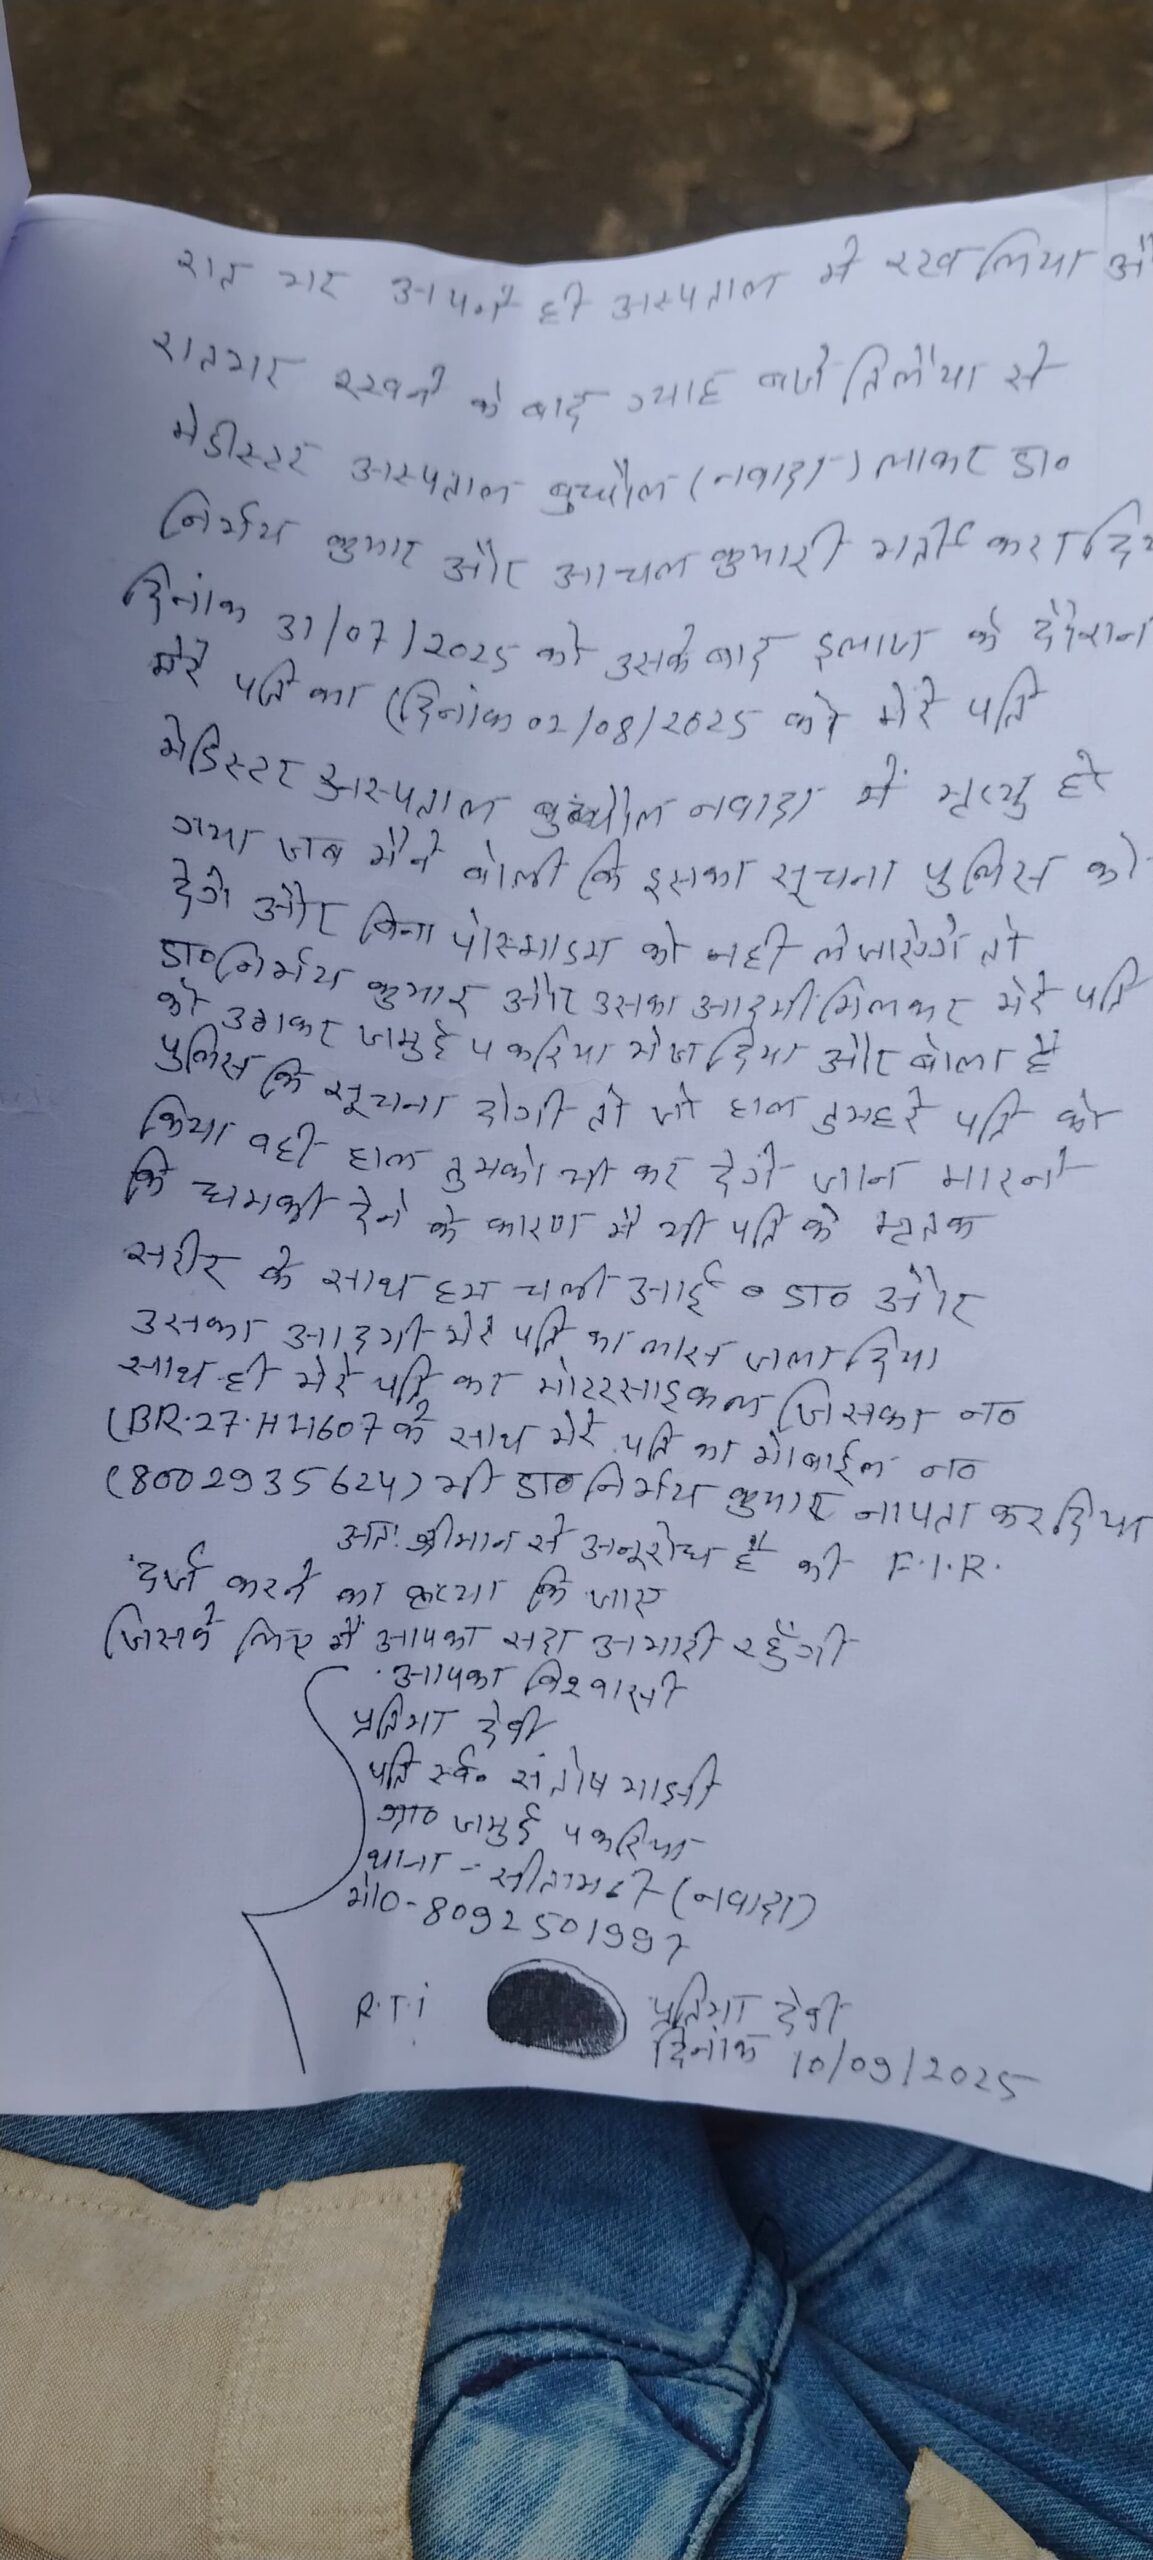 रात भर अपने ही अस्पताल में रख लिया औ
रातभर रखने के बाद ग्याह बजे तिलैया से
मेडीस्टर अस्पताल बुधौल (नवादा) लाकर डा०
निर्भय कुमार और आचल कुमारी भर्ती करा दि
दिनांक 31/07/2025 को उसके बाद इलाज के दौरान
मेरे पति का (दिनांक 02/08/2025 को मेरे पति
मेडिस्टर अस्पताल बुधौल नवादा में मृत्यु हो
गया जब मैने बोली कि इसका सूचना पुलिस को
देगे और बिना पोस्माडम को नही ले जाऐगे तो
डा० निर्भय कुमार और उसका आदमी मिलकर मेरे पति
को उठाकर जामुई पकरिया भेज दिया और बोला है
पुलिस कि सूचना दोगी तो जो हाल तुमहरे पति को
किया वही हाल तुमको भी कर देगे जान मारने
कि धमकी देने के कारण मै भी पति के मृतक
सरीर के साथ हम चली आई ० डा० और
उसका आदमी मेरे पति का लास जला दिया
साथ ही मेरे पति का मोटरसाइकल जिसका न०
(BR.27.H 1607 के साथ मेरे पति का मोबाईल न०
(8002935624) भी डा० निर्भय कुमार लापता कर दिया
अतः श्रीमान से अनूरोध है की F.I.R.
दर्ज करने का कृप्या कि जाए
जिसके लिए मैं आपका सदा आभारी रहुँगी
आपका विश्वासी
प्रतिमा देवी
पति स्व० संतोष माझी
ग्रा० जामुई पकरिया
थाना - सीतामढी (नवादा)
मो०- 8092501997
R.T.i प्रतिमा देवी
दिनांक 10/09/2025